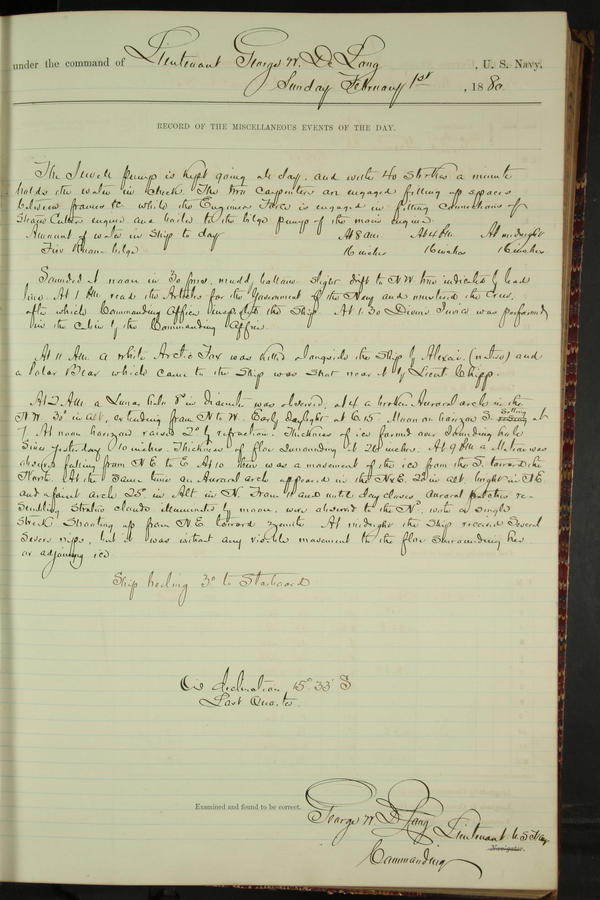 under the command of Lieutenant George W. De Long, U. S. Navy.
Sunday February 1st, 1880
RECORD OF THE MISCELLANEOUS EVENTS OF THE DAY.
The Sewell pump is kept going all day, and with 40 strokes a minute
holds the water in check. The two Carpenters are engaged filling up spaces
between frames &c while the Engineer's Force is engaged in fitting connections of
Steam Cutter engine and boiler to the bilge pump of the main engine.
Amount of water in Ship to day At 8 am. At 4 PM. At midnight
Fire Room bilge 16 inches 16 inches 16 inches
Sounded at noon in 30 fms. mudd, bottom. Slight drift to N.W. being indicated by lead
line. At 1 PM. read the Articles for the Government of the Navy and mustered the Crew,
after which Commanding Officer inspected the Ship. At 1.30 Divine Service was performed
in the Cabin by the Commanding Officer.
At 11 AM. a White Arctic Fox was killed alongside the Ship by Alexai (native) and
a Polar Bear which came to the Ship was shot near it by Lieut Chipp.
At 2 AM. a Lunar halo 8° in diameter was observed, at 4 a broken Auroral arch in the
N.W. 30° in alt, extending from N to W. Early daylight at 6.15. Moon on horizon S. Setting at
7. At noon horizon raised 2° by refraction. Thickness of ice formed over Sounding hole
since yesterday 10 inches. Thickness of floe surrounding it 26 inches. At 9 PM a Meteor was
observed falling from N.E. to E. At 10 there was a movement of the ice from the S. toward the
North. At the same time an Auroral arch appeared in the N & E. 20° in alt, bright in NE
and a faint arch 25° in Alt in N. From 11 and until day closes, auroral patches re-
sembling stratus clouds illuminated by moon, were observed to the N., with a single
streak shooting up from N.E. toward zenith. At midnight the Ship received several
severe nips, but it was without any visible movement to the floe surrounding her
or adjoining ice.
Ship heeling 3° to Starboard
declination 15° 33' S
Last Quarter.
Examined and found to be correct.
George W. De Long Lieutenant U.S. Navy
Navigator.
Commanding